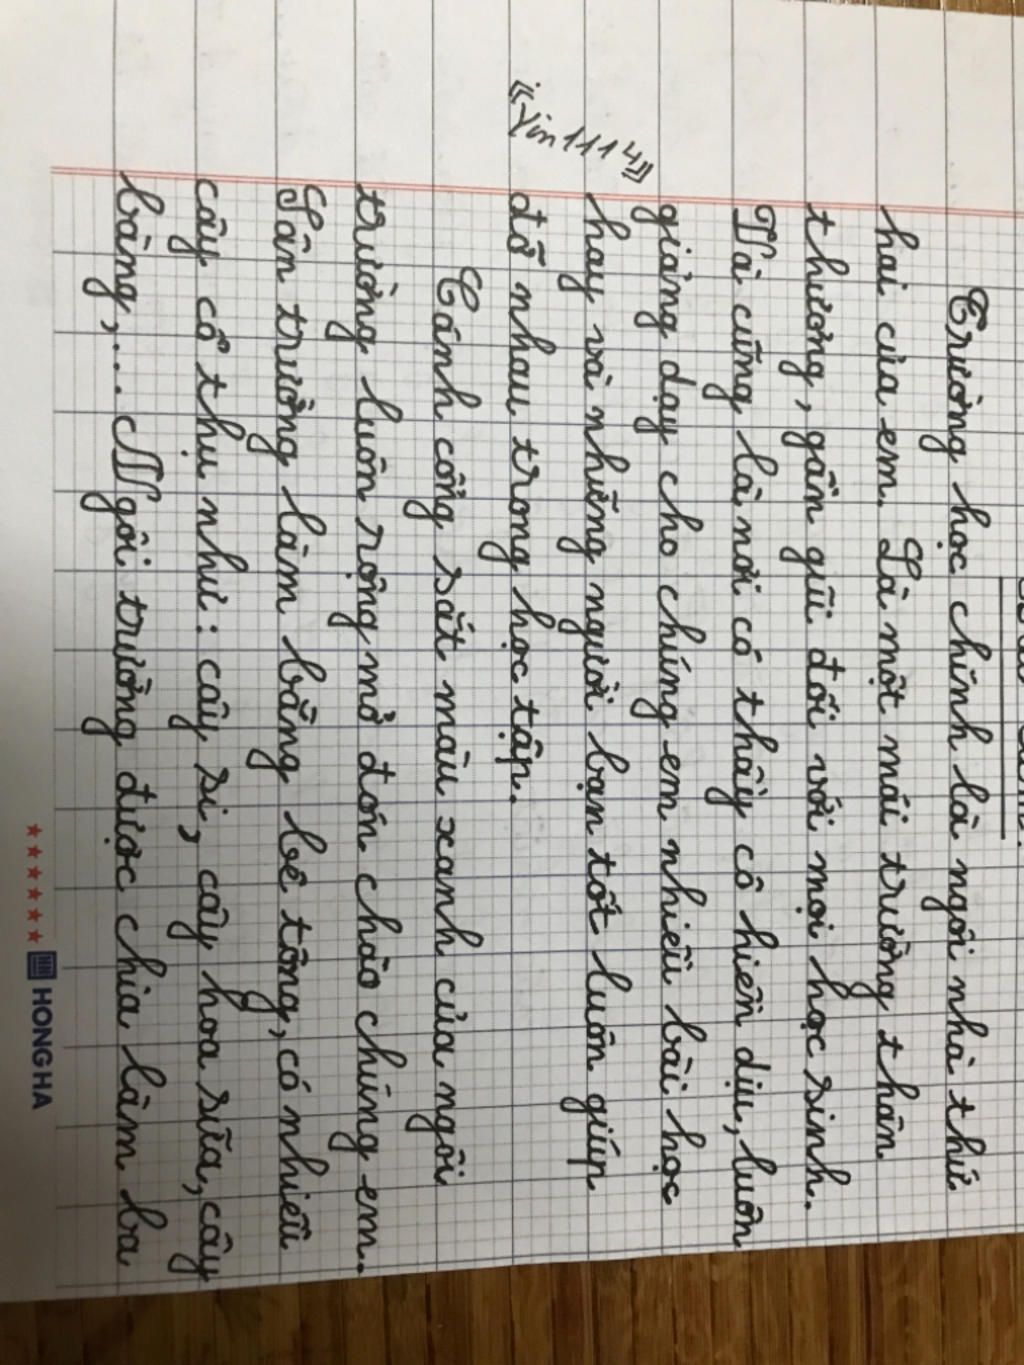 Trường học chính là ngôi nhà thứ
hai của em. Là một mái trường thân
thương, gần gũi đối với mọi học sinh.
Và cũng là nơi có thầy cô hiền dịu, luôn
giảng dạy cho chúng em nhiều bài học
hay và những người bạn tốt luôn giúp
đỡ nhau trong học tập.
Cánh cổng sắt màu xanh của ngôi
trường luôn rộng mở đón chào chúng em.
Sân trường làm bằng bê tông, có nhiều
cây cổ thụ như: cây si, cây hoa sữa, cây
bàng,... Ngôi trường được chia làm ba
"Yin1114"
HONG HA